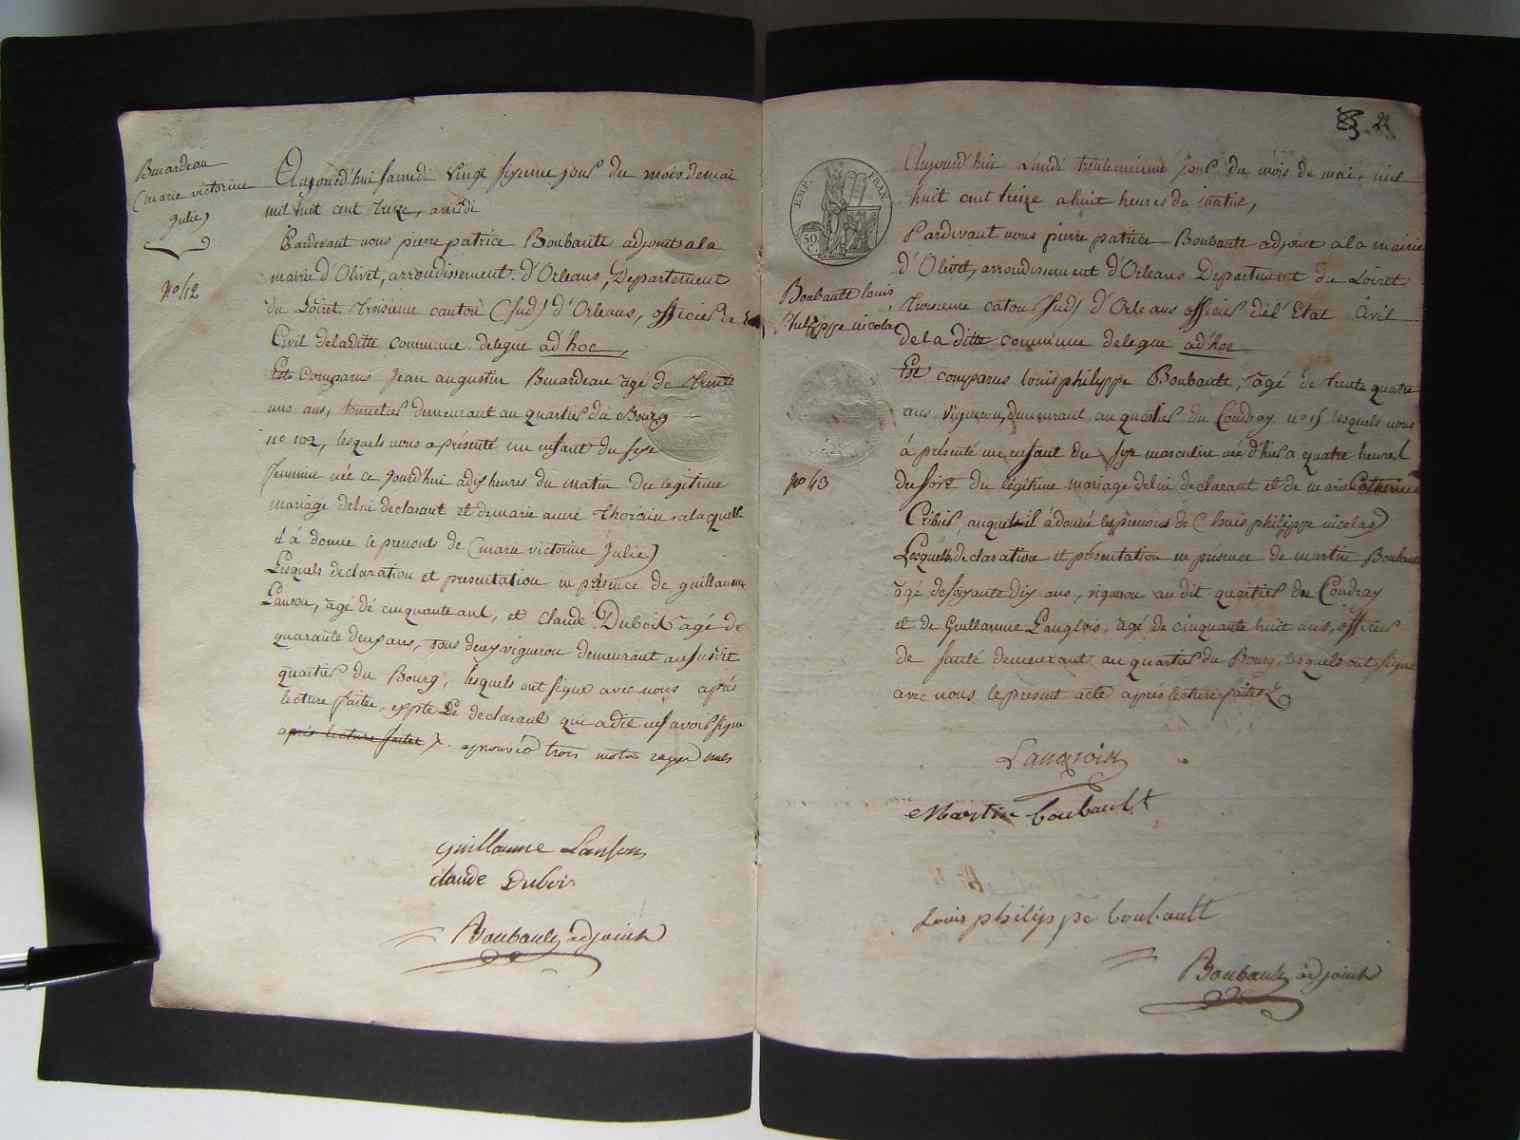 Binardeau
(marie victorine
julie)
No 42
Aujourd'hui samedi vingt sixieme jour du mois de mai
mil huit cent treize, a midi
Pardevant nous pierre patrice Boubault adjoint a la
mairie d'Olivet, arrondissement d'Orleans, Departement
du Loiret troisieme canton (sud) d'Orleans, officier de
Civil de la ditte commune delegue ad'hoc,
Est Comparus jean augustin Binardeau âgé de trente
uns ans, tonnelier demeurant au quartier du Bourg
no 102, lesquels nous a présenté un enfant du sexe
feminin née ce jourd'hui a dix heures du matin du legitime
mariage de lui declarant et de marie anne thoisin a laquelle
il a donné le prenoms de (marie victorine julie)
Lesquels declaration et presentation en présence de guillaume
Lanson, âgé de cinquante ans, et claude Dubois âgé de
quarante deux ans, tous deux vigneron demeurant au susdit
quartier du Bourg, lesquels ont signé avec nous après
lecture faitte, expte Le declarant qui a dit ne savoir signer
après lecture faitte approuvéd trois mots rayer nuls
guillaume Lanson
claude Dubois
Boubault adjoint
22
EMP. FRAN.
50 C.
Boubault louis
philippe nicolas
No 43
Aujourd'hui Lundi trente unieme jour du mois de mai, mil
huit cent treize a huit heures du matin,
Pardevant nous pierre patrice Boubault adjoint a la mairie
d'Olivet, arrondissement d'Orleans Departement de Loiret
troisieme caton (sud) d'Orleans officier de l'Etat Civil
de la ditte commune delegue ad'hoc
Est comparus louis philippe Boubault, âgé de trente quatre
ans vigneron, demeurant au quartier du Coudray no 15 lesquels nous
à présenté un enfant du sexe masculin né d'hier a quatre heures
du soir du légitime mariage de lui declarant et de marie Catherine
Cribier, auquel il à donné les prenoms de (louis philippe nicolas)
Lesquels declaration et présentation en présence de martin Boubault
âgé de soixante dix ans, vigneron au dit quartier du Coudray
et de Guillaume Langlois, âgé de cinquante huit ans, officier
de santé demeurant au quartier du Bourg, lesquels ont signé
avec nous le present acte après lecture faitte
Langlois
Martin boubault
Louis philippe boubault
Boubault adjoint